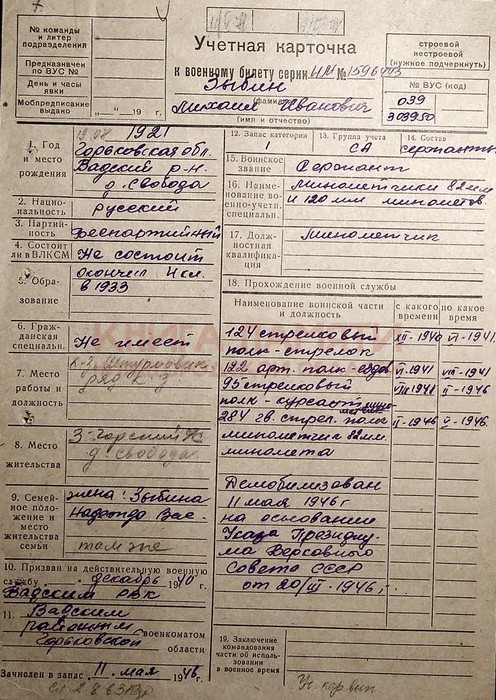 № команды
и литер
подразделения
Предназначен
по ВУС №
День и часы
явки
Мобпредписание
выдано
"__"__19__г.
Учетная карточка
к военному билету серии НМ № 1596473
Зыбин
(фамилия)
Михаил Иванович
(имя и отчество)
строевой
нестроевой
(нужное подчеркнуть)
№ ВУС (код)
039
303950
1. Год
и место
рождения
19.08 1921
Горьковская обл.
Вадский р-н.
д. Свобода
2. Нацио-
нальность
русский
3. Партий-
ность
Беспартийный
4. Состоит
ли в ВЛКСМ
Не состоит
5. Обра-
зование
окончил 4 кл.
в 1933
6. Граж-
данская
специальн.
Не имеет
7. Место
работы и
должность
8. Место
жительства
д. Свобода
9. Семей-
ное поло-
жение и
место
жительства
семьи
жена: Зыбина
Надежда Вас-
там же
10. Призван на действительную военную
службу декабрь 1940 г.
Вадским РВК
11. Вадским
районным
военкоматом
Горьковской
области
Зачислен в запас 11 мая 1946 г.
12. Запас категории
1
13. Группа учета
СА
14. Состав
сержантск
15. Воинское
звание
Сержант
16. Наиме-
нование во-
енно-учетн.
специальн.
Минометчики 82 мм
и 120 мм минометов
17. Долж-
ностная
квалифика-
ция
Минометчик
18. Прохождение военной службы
Наименование воинской части
и должность
с какого
времени
по какое
время
124 стрелковый XII-1940 VI-1941
полк-стрелок
122 арт. полк-ездов. VI-1941 VIII-1941
95 стрелковый VIII-1941 II-1946
полк-курсант
284 гв. стрел. полк II-1946 V-1946
минометчик 82 мм.
миномета
Демобилизован
11 мая 1946 г
на основании
Указа Президиу-
ма Верховного
Совета СССР
от 20/III-1946 г.
19. Заключение
командования
части об исполь-
зовании
в военное время